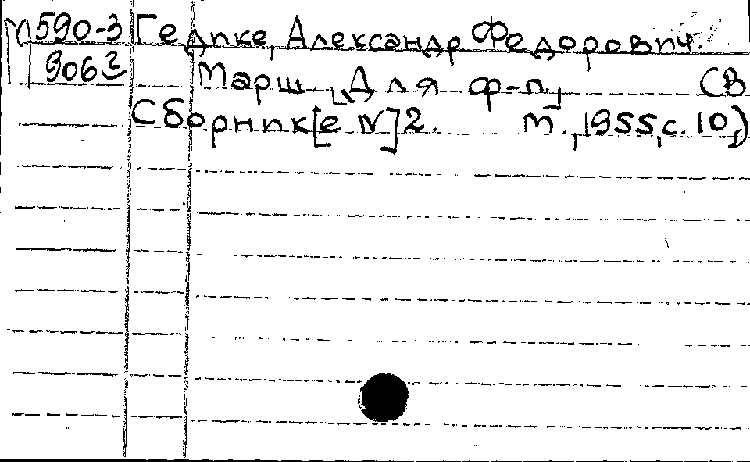 М590-3 Гедике, Александр Федорович.
9063 Марш [Для ф-п] (В
Сборник[е №]2. М., 1955, с. 10,)